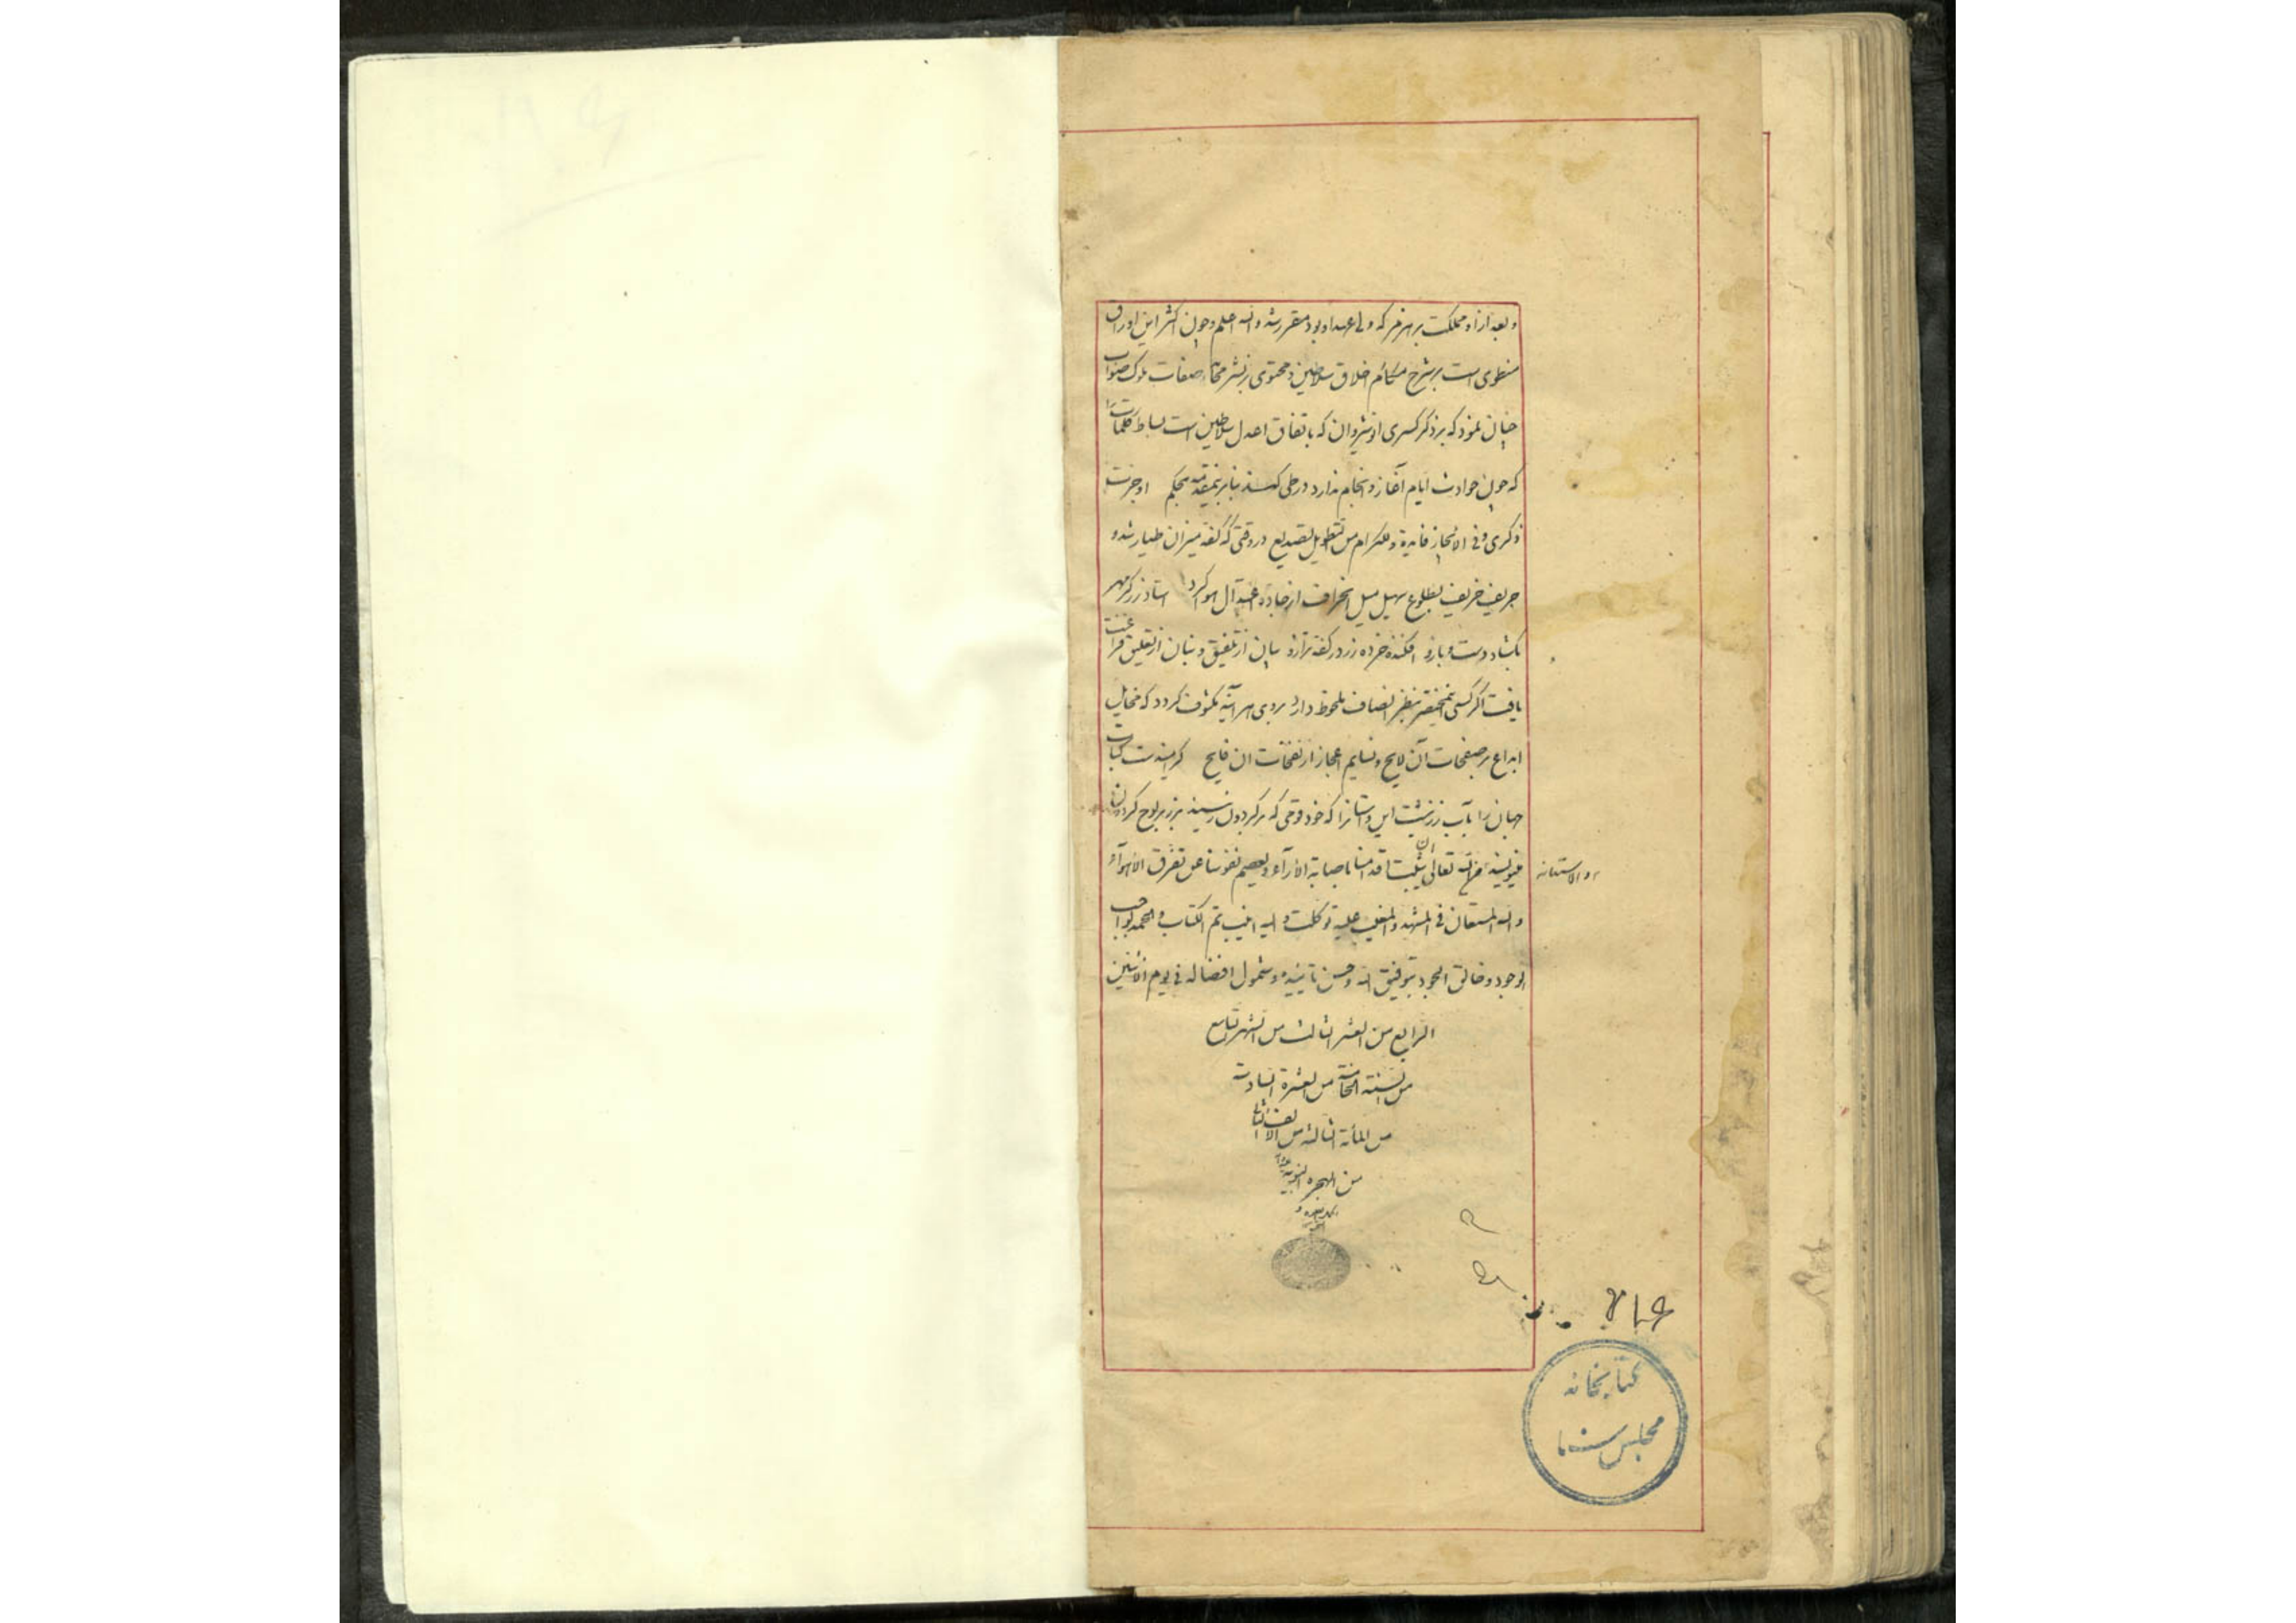 و بعد از او مملکت بر هرمز که ولی عهد او بود مقرر شد و الله اعلم و چون اکثر این اوراق
منطوی است بر شرح مکارم اخلاق سلاطین و محتوی بر نشر صفات ملوک صواب
چنان نمود که بر ذکر کسری انوشیروان که باتفاق اعدل سلاطین است بساط کلمات را
که چون حوادث ایام آغاز و انجام ندارد در طی کشد بنابرین مقدمه بحکم اوجزت
ذکری و فی الایجاز فایدة و للکرام من التطویل تصدیع در وقتی که کفه میزان طیار شد و
حریف خریف بطلوع سهیل میل انحراف از جاده اعتدال هوا کرد استاد زرگر مهر
بگشاد دست و بازو افکنده خرده زر در کفه ترازو بیان از تلفیق و بنان از تعلیق فراغت
یافت اگر کسی بنظر انصاف ملحوظ دارد بر وی هر آینه مکشوف گردد که مخایل
ابداع بر صفحات آن لایح و نسایم اعجاز از نفحات ان فایح کتاب
جهان را بآب زر نبشت این داستانرا که خود بر گردون رسیند بزر بر لوح گردون
تعالی ان یثبت اقدامنا باصابة الآراء و یعصم نفوسنا عن تفرق الاهواء
والاستعانه
و الله المستعان فی المشهد و المغیب علیه توکلت و الیه انیب تم الکتاب و الحمد لواجب
الوجود و خالق الجود بتوفیق الله و حسن تاییده و شمول افضاله فی یوم الاثنین
الرابع من العشر الثالث من الشهر التاسع
من السنة الخامسة من العشرة السادسة
من المأة الثالثة من الالف الثانی
من الهجره النبویه
کتابخانه
مجلس سنا